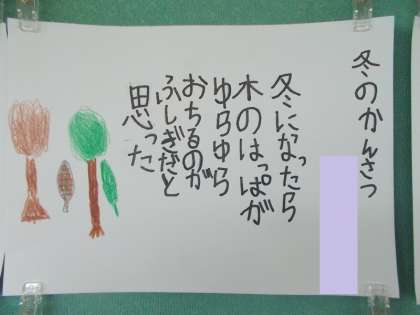 冬のかんさつ
冬になったら
木のはっぱが
ゆらゆら
おちるのが
ふしぎだと
思った